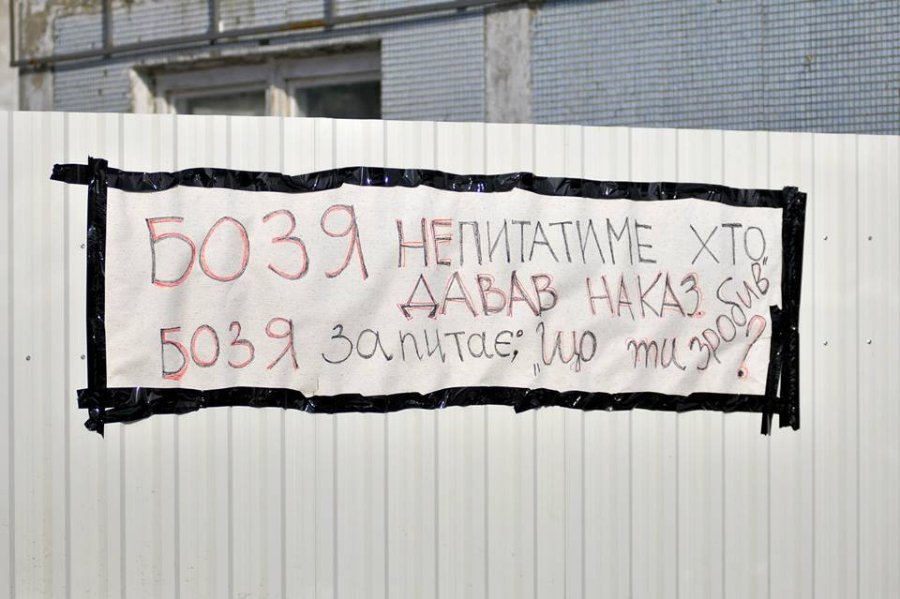 БОЗЯ НЕПИТАТИМЕ ХТО
ДАВАВ НАКАЗ.
БОЗЯ запитає; „що ти зробив"?